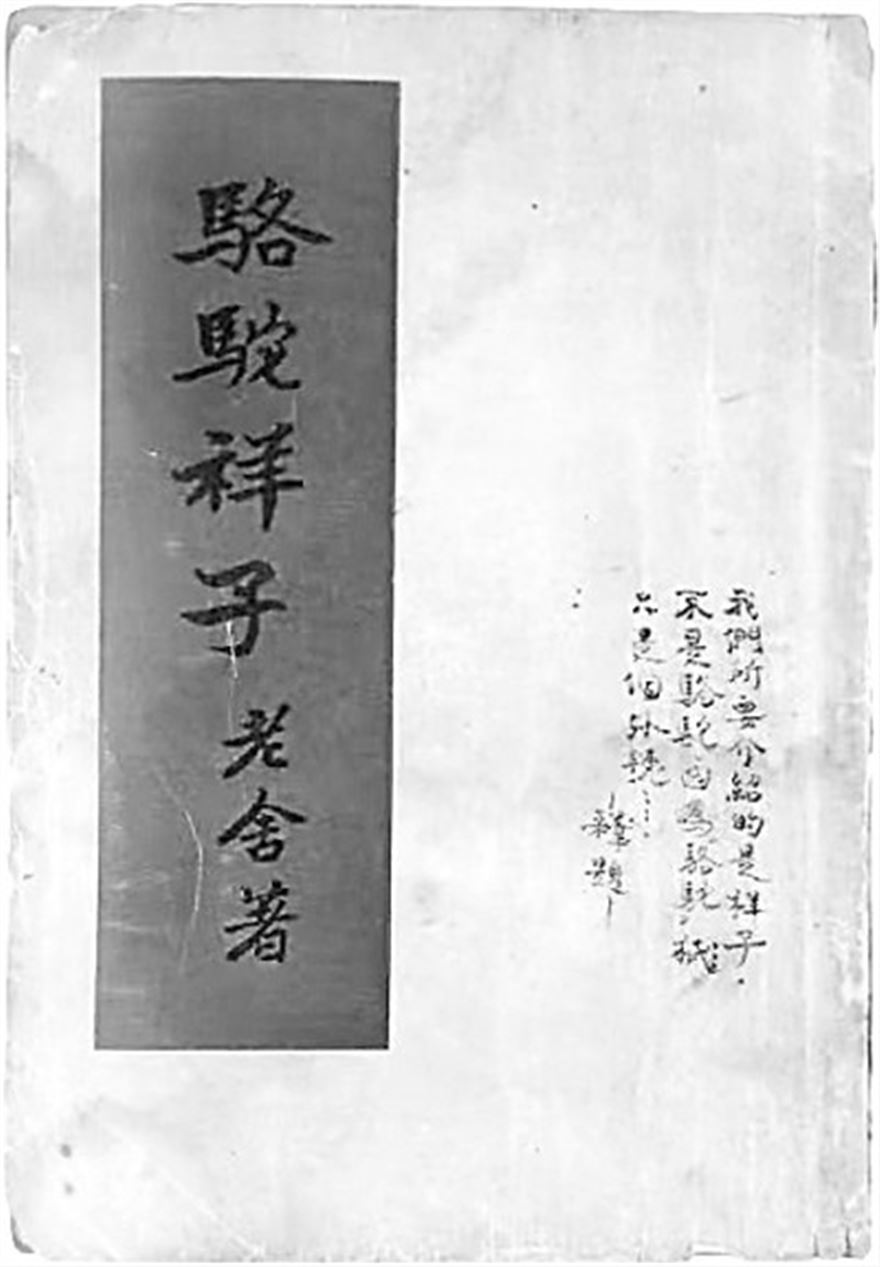 駱駝祥子 老舍著
我們所要介紹的是祥子.
不是駱駝因為駱駝,祇
是個外號……
—釋題—